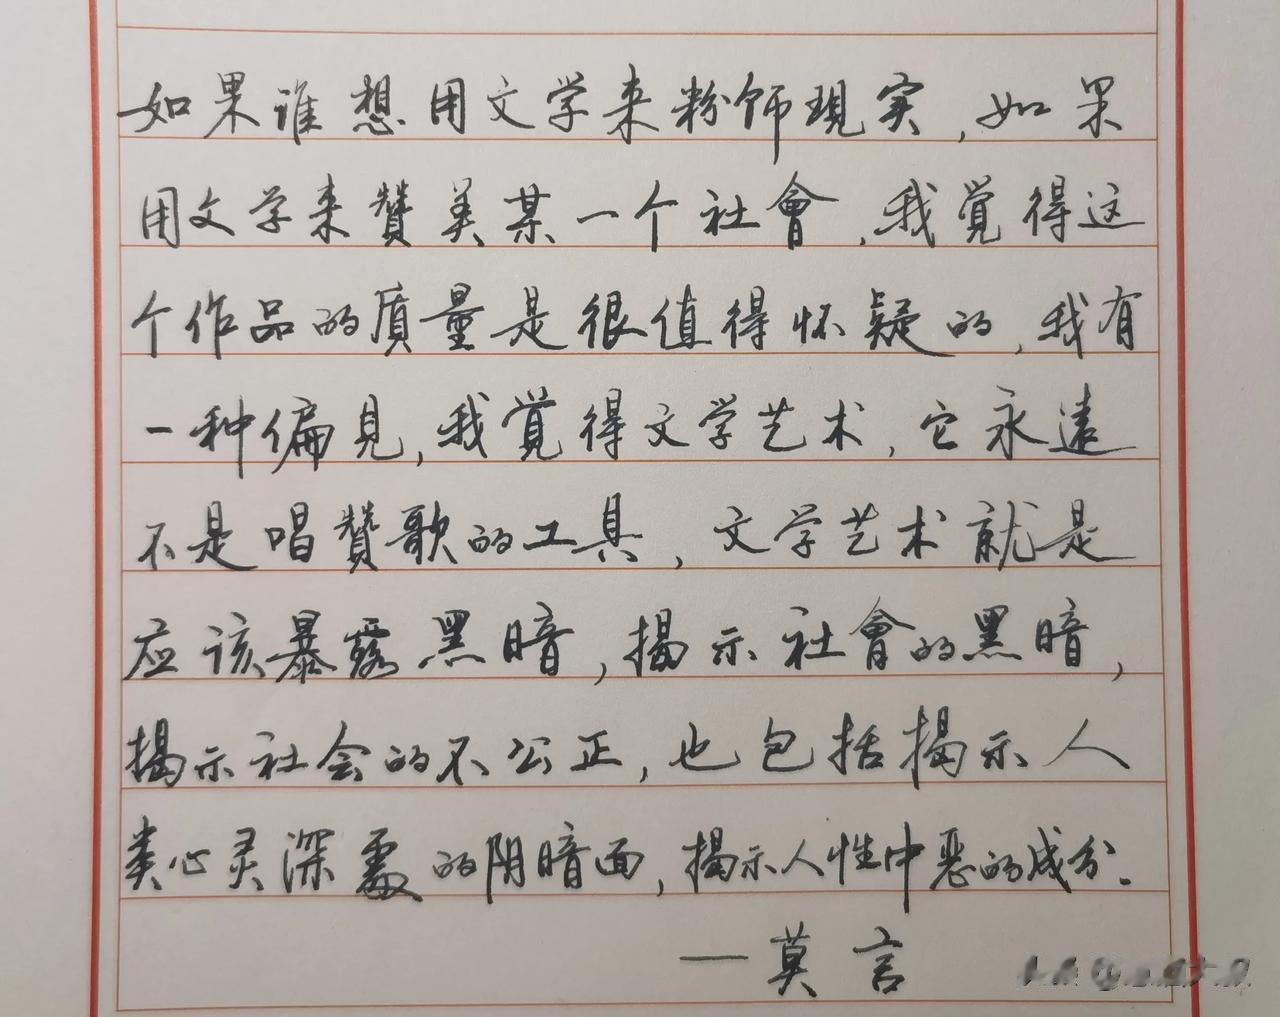 如果谁想用文学来粉饰現实,如果
用文学来贊美某一个社會,我覚得这
个作品的质量是很值得怀疑的,我有
一种偏見,我覚得文学艺术,它永遠
不是唱贊歌的工具,文学艺术就是
应该暴露黑暗,揭示社會的黑暗,
揭示社会的不公正,也包括揭示人
类心灵深處的阴暗面,揭示人性中恶的成分.
—莫言